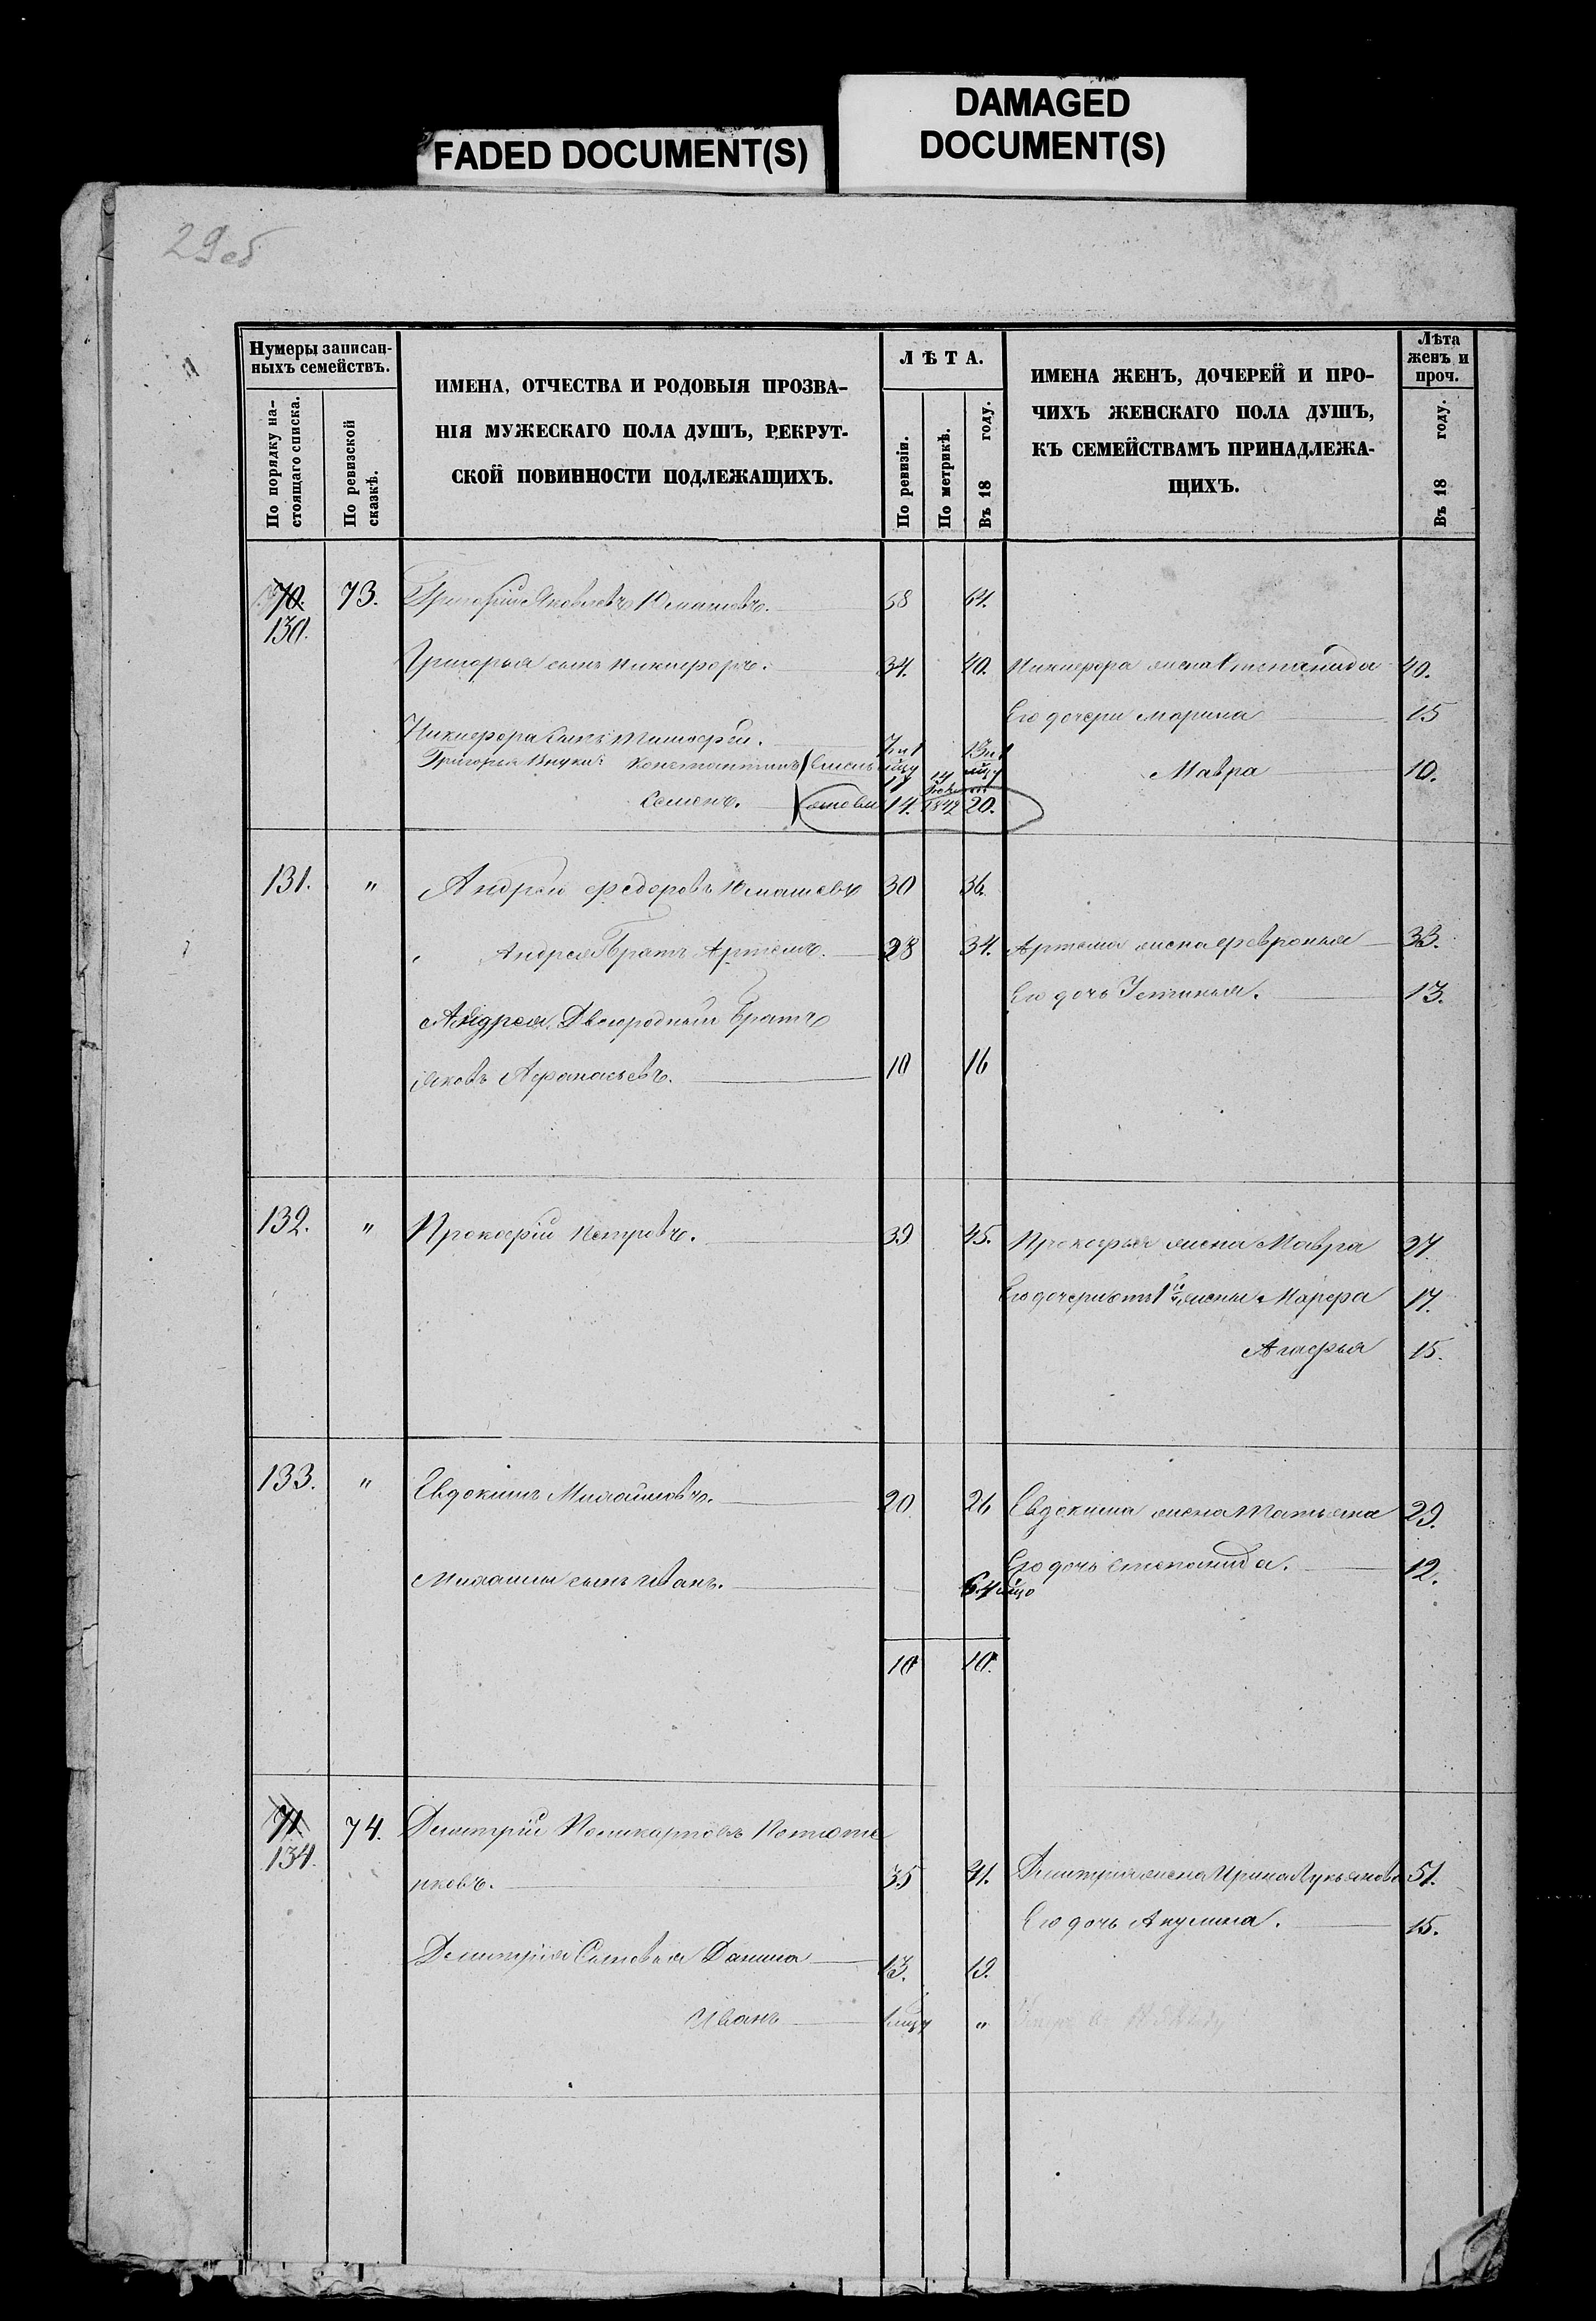 FADED DOCUMENT(S)
DAMAGED
DOCUMENT(S)
29об
Нумеры записан-
ныхъ семействъ.
По порядку на-
стоящаго списка.
По ревизской
сказкѣ.
ИМЕНА, ОТЧЕСТВА И РОДОВЫЯ ПРОЗВА-
НІЯ МУЖЕСКАГО ПОЛА ДУШЪ, РЕКРУТ-
СКОЙ ПОВИННОСТИ ПОДЛЕЖАЩИХЪ.
ЛѢТА.
По ревизіи.
По метрикѣ.
Въ 18 году.
ИМЕНА ЖЕНЪ, ДОЧЕРЕЙ И ПРО-
ЧИХЪ ЖЕНСКАГО ПОЛА ДУШЪ,
КЪ СЕМЕЙСТВАМЪ ПРИНАДЛЕЖА-
ЩИХЪ.
Лѣта
женъ и
проч.
Въ 18 году.
70. 73. Григорій Яковлевъ Юмашевъ. 58 64.
130.
Григорья сынъ Никифоръ. 34. 40. Никифора жена Степанида 40.
Его дочери Марина 15
Никифора сынъ Тимофей. 7
Григорья внуки Константинъ Мавра 10.
Семенъ. 14. 1842 20.
131. " Андрей Федоровъ Юмашевъ 30 36.
Андрея братъ Артемъ. 28 34. Артема жена Февронья 33.
Его дочь Устинья. 13.
Андрея Двоюродный братъ
Яковъ Афанасьевъ. 10 16
132. " Прокофій Петровъ. 39 45. Прокофья жена Мавра 27.
Его дочери отъ 1й жены Марфа 17.
Агафья 15.
133. " Евдокимъ Михайловъ. 20 26 Евдокима жена Татьяна 29.
Его дочь Степанида. 12.
Михаилы сынъ Иванъ.
10 10.
71 74. Дмитрій Поликарповъ Потате
134.
нковъ. 35 41. Дмитрія жена Ирина Лукьянова 51.
Его дочь Акулина. 15.
Дмитрія Сыновья Данила 13. 19.
Иванъ "